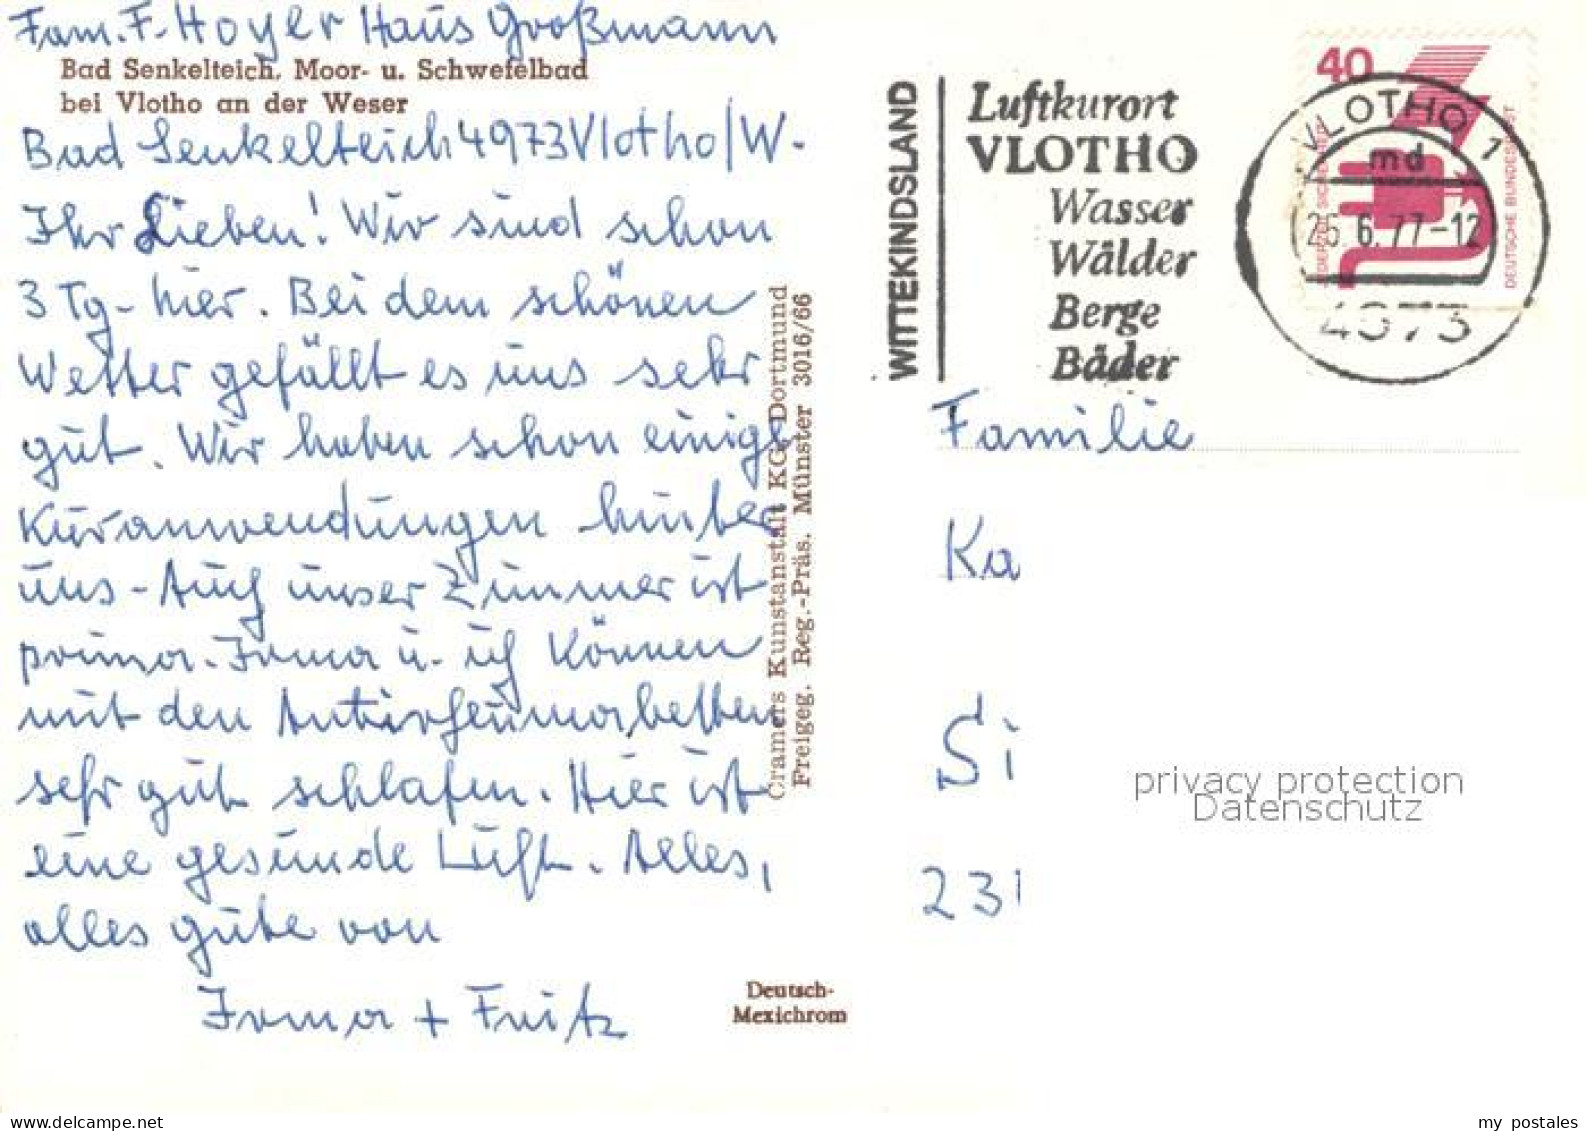 Fam. F. Hoyer Haus Großmann
Bad Senkelteich, Moor- u. Schwefelbad
bei Vlotho an der Weser
Bad Senkelteich 4973 Vlotho/W.
Ihr Lieben! Wir sind schon
3 Tg. hier. Bei dem schönen
Wetter gefällt es uns sehr
gut. Wir haben schon einige
Kuranwendungen hinter
uns. Auch unser Zimmer ist
prima. Irma u. ich können
mit den Antirheumabetten
sehr gut schlafen. Hier ist
eine gesunde Luft. Alles,
alles gute von
Irma + Fritz
Cramers Kunstanstalt KG, Dortmund
Freigeg. Reg.-Präs. Münster 3016/66
Deutsch-
Mexichrom
WITTEKINDSLAND
Luftkurort
VLOTHO
Wasser
Wälder
Berge
Bäder
40
DEUTSCHE BUNDESPOST
VLOTHO 1
md
25.6.77-12
4973
Familie
Ka
Si
23
privacy protection
Datenschutz
my postales